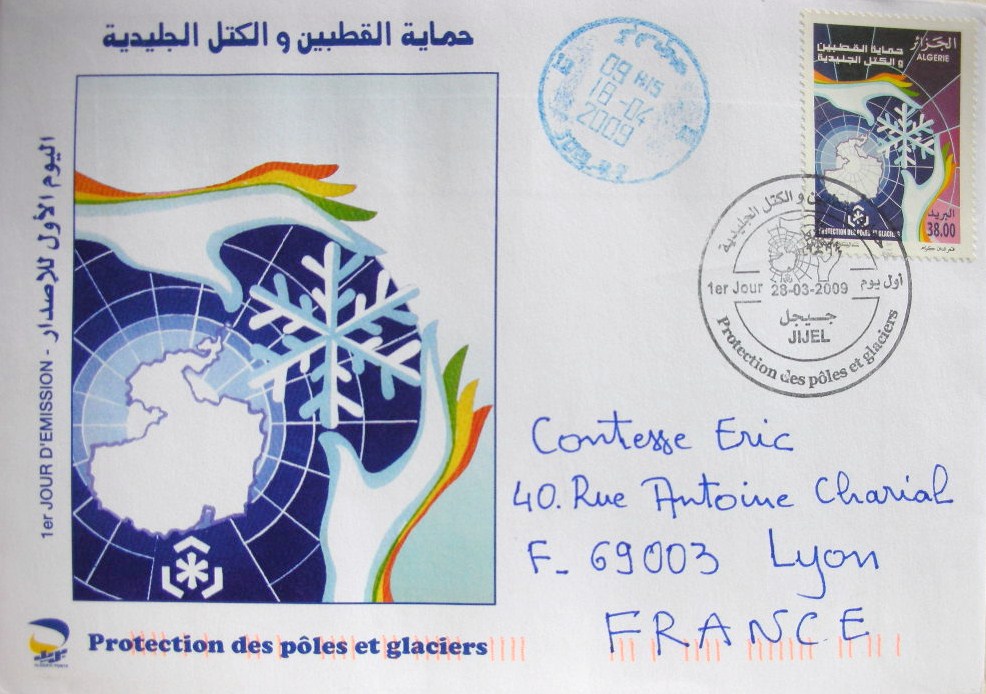 حماية القطبين و الكتل الجليدية
اليوم الأول للإصدار - 1er JOUR D'EMISSION
Protection des pôles et glaciers
09 H15
18-04
2009
الجزائر
ALGERIE
حماية القطبين
و الكتل الجليدية
البريد
38.00
PROTECTION DES PÔLES ET GLACIERS
و الكتل الجليدية
1er Jour 28-03-2009 أول يوم
جيجل
JIJEL
Protection des pôles et glaciers
Contesse Eric
40. Rue Antoine Charial
F_ 69003 Lyon
FRANCE